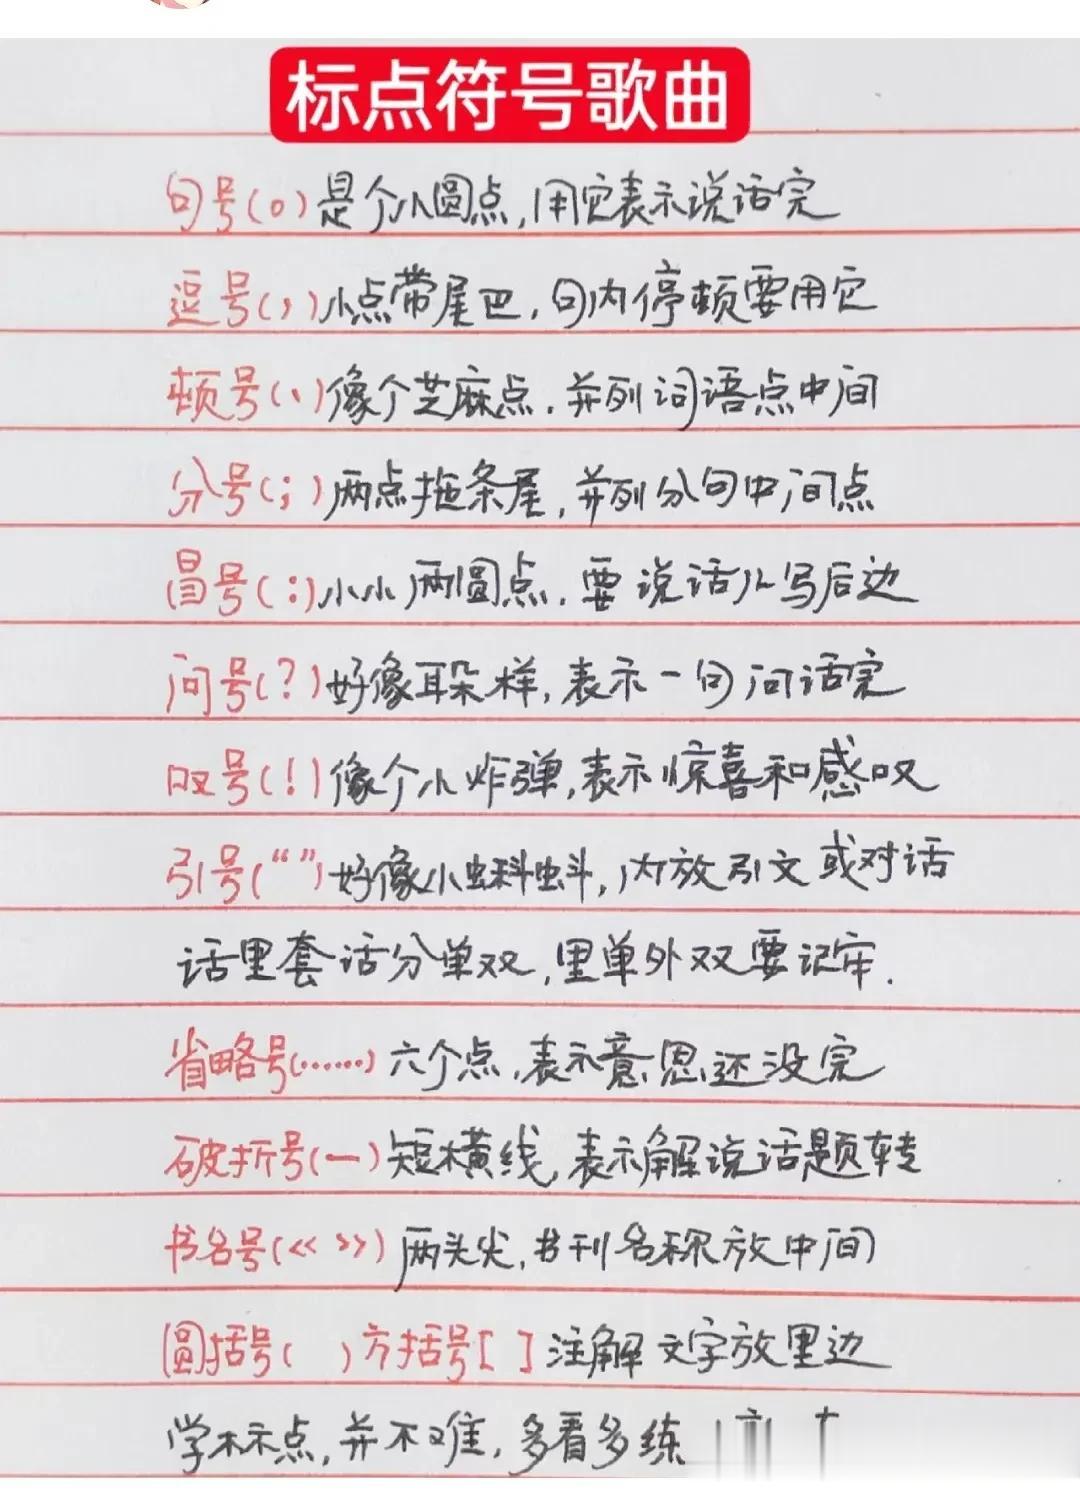 标点符号歌曲
句号(。)是个小圆点,用它表示说话完
逗号(,)小点带尾巴,句内停顿要用它
顿号(、)像个芝麻点.并列词语点中间
分号(;)两点拖条尾,并列分句中间点
冒号(:)小小两圆点.要说话儿写后边
问号(?)好像耳朵样,表示一句问话完
叹号(!)像个小炸弹,表示惊喜和感叹
引号(“”)好像小蝌蚪,内放引文或对话
话里套话分单双,里单外双要记牢.
省略号(……)六个点,表示意思还没完
破折号(一)短横线,表示解说话题转
书名号(《 》)两头尖,书刊名称放中间
圆括号( )方括号[ ]注解文字放里边
学标点,并不难,多看多练